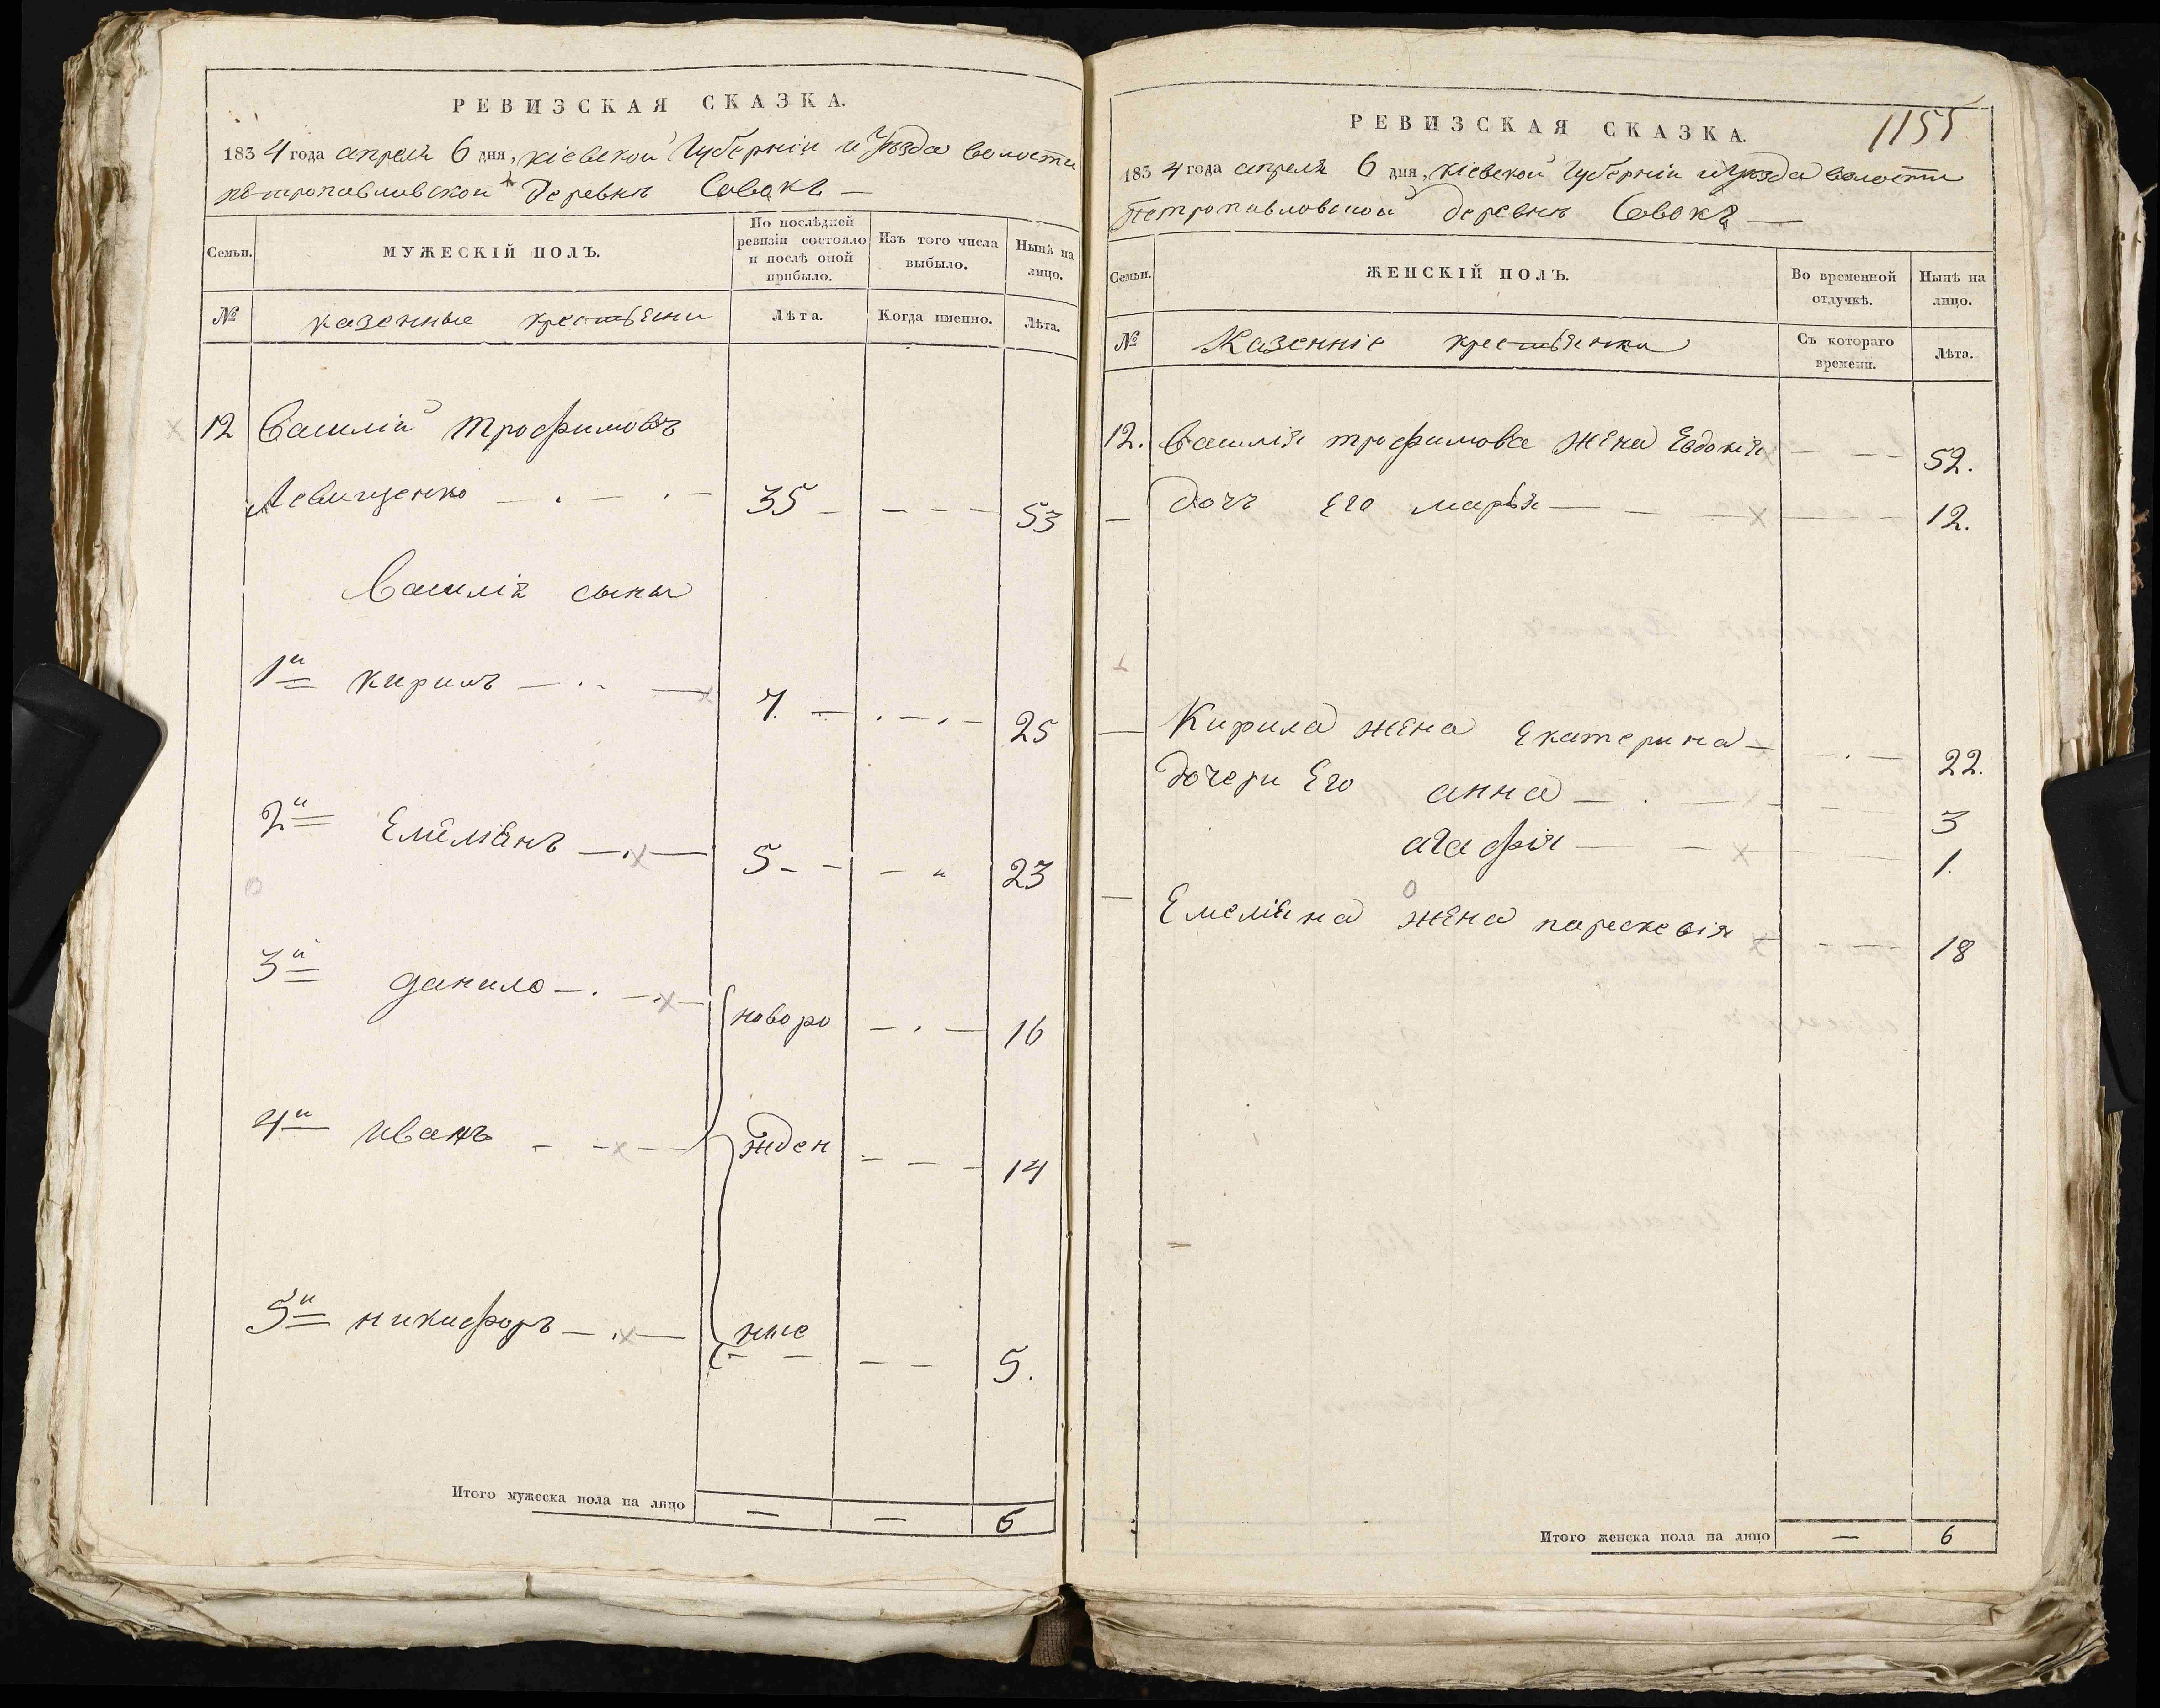 РЕВИЗСКАЯ СКАЗКА.
1834 года апреля 6 дня, кіевской Губерніи и Уѣзда волости
петропавловской деревнѣ Совокъ —
Семьи.
МУЖЕСКІЙ ПОЛЪ.
По послѣдней ревизіи состояло и послѣ оной прибыло.
Изъ того числа выбыло.
Нынѣ на лицо.
№
казенные крестьяни
Лѣта.
Когда именно.
Лѣта.
12 Василій трофимовъ
Левищенко 35 53
Василія сыны
1й кирилъ 7. 25
2й Емеліянъ 5 23
3й данило новоро 16
4й иванъ жден 14
5й никифоръ ные 5.
Итого мужеска пола на лицо — — 6
1155
РЕВИЗСКАЯ СКАЗКА.
1834 года апреля 6 дня, кіевской Губерніи и Уѣзда волости
Петропавловской деревнѣ Совокъ —
Семьи.
ЖЕНСКІЙ ПОЛЪ.
Во временной отлучкѣ.
Нынѣ на лицо.
№
Казенніе крестьянки
Съ котораго времени.
Лѣта.
12. Василія трофимова жена Евдокія 52.
дочь его марья 12.
Кирила жена Екатерина 22.
дочери Его анна 3
агафія 1.
Емеліяна жена параскевія 18
Итого женска пола на лицо — 6